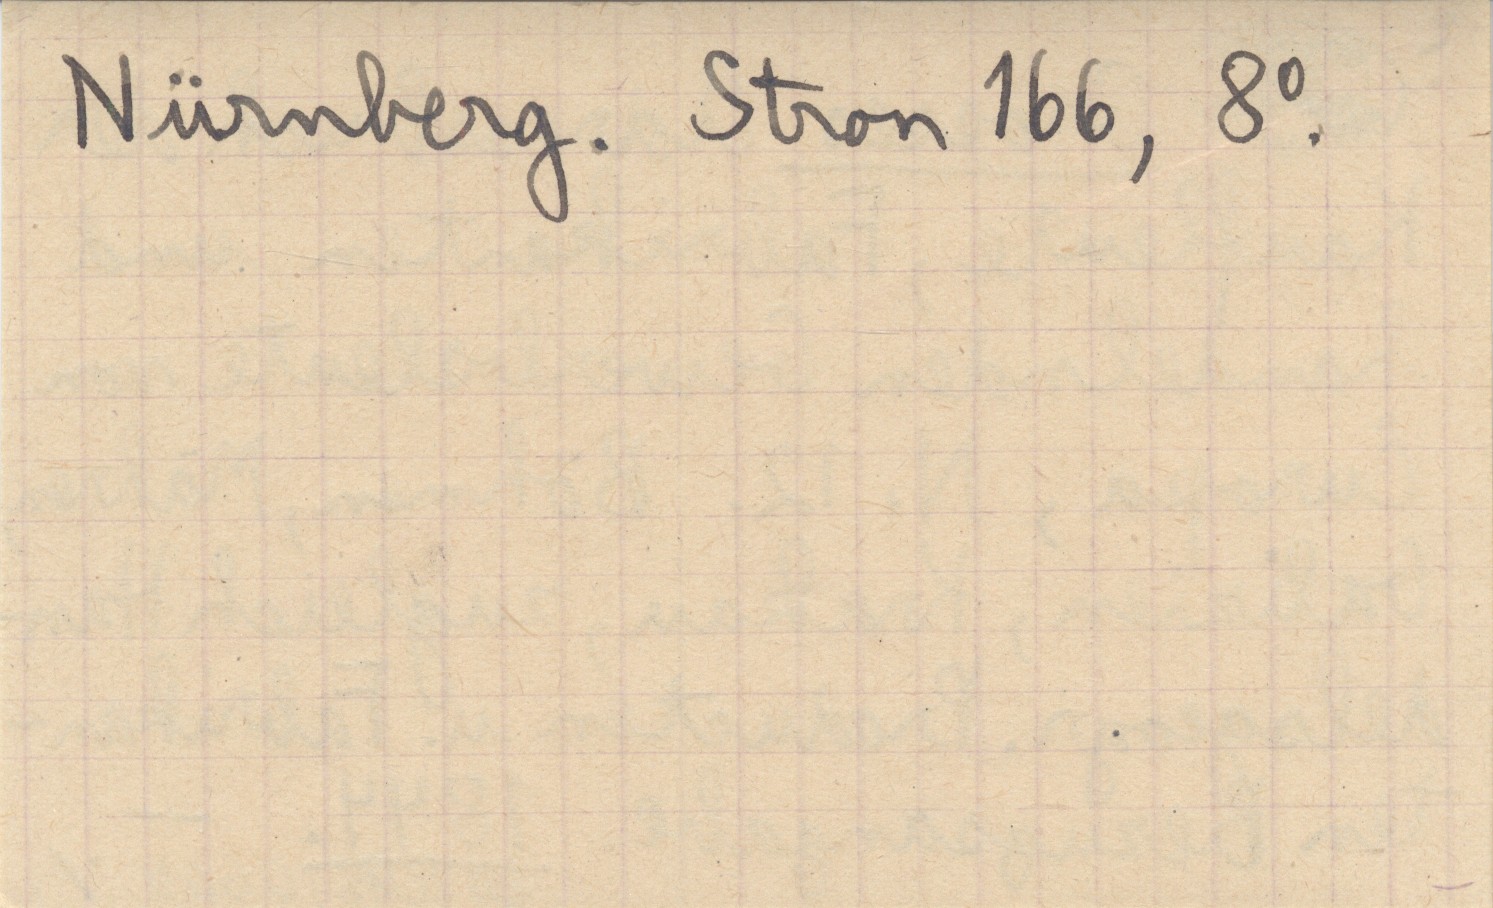 Nürnberg. Stron 166, 8º.